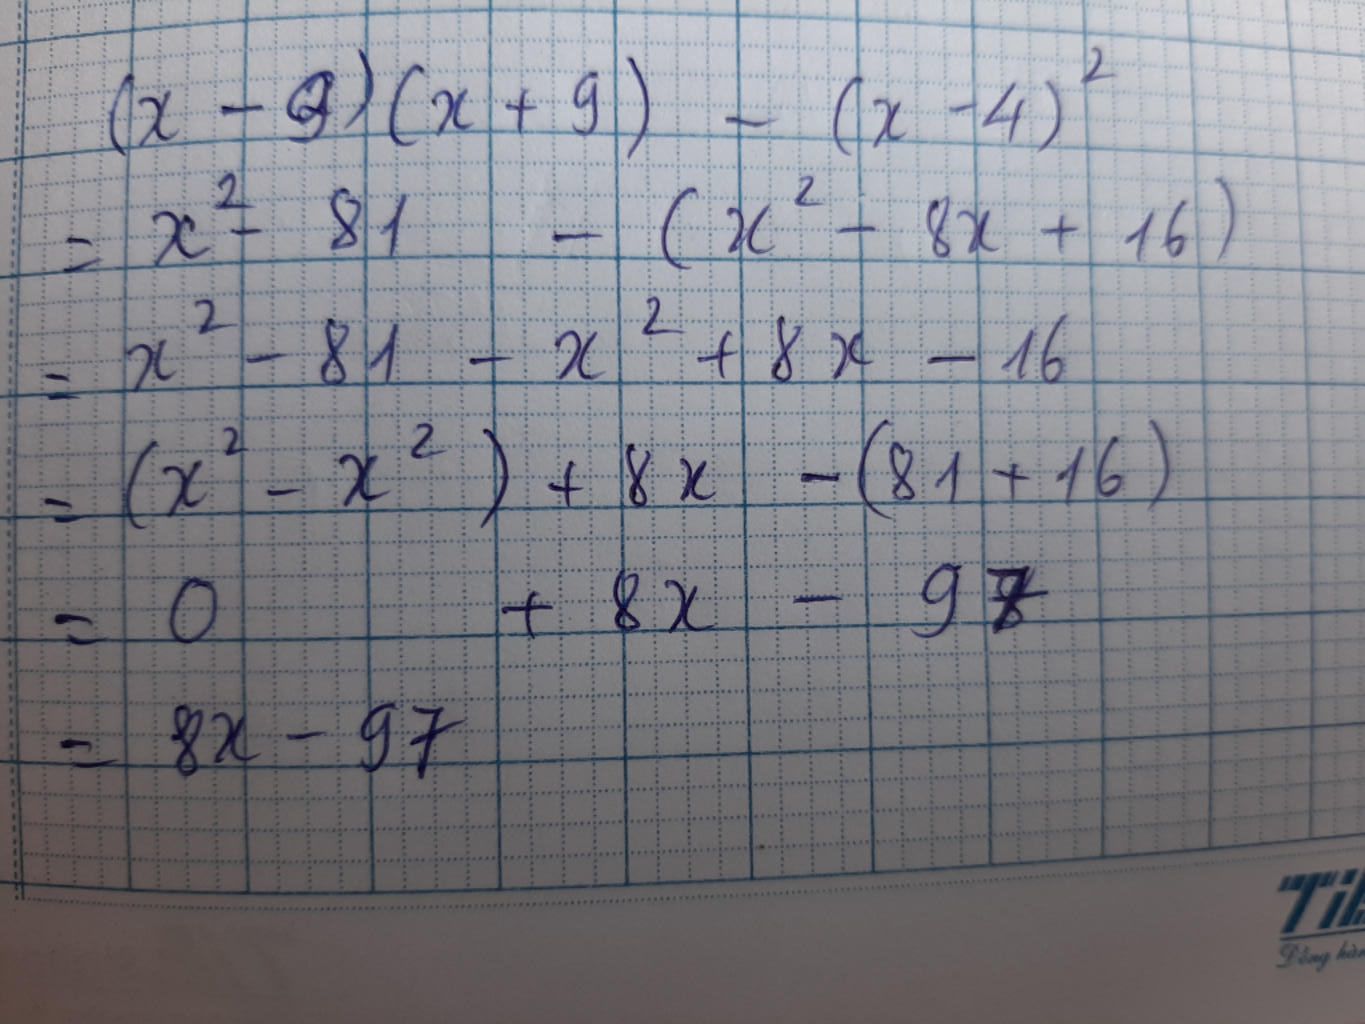 (x - 9)(x + 9) - (x - 4)²
= x² - 81 - (x² - 8x + 16)
= x² - 81 - x² + 8x - 16
= (x² - x²) + 8x - (81 + 16)
= 0 + 8x - 97
= 8x - 97